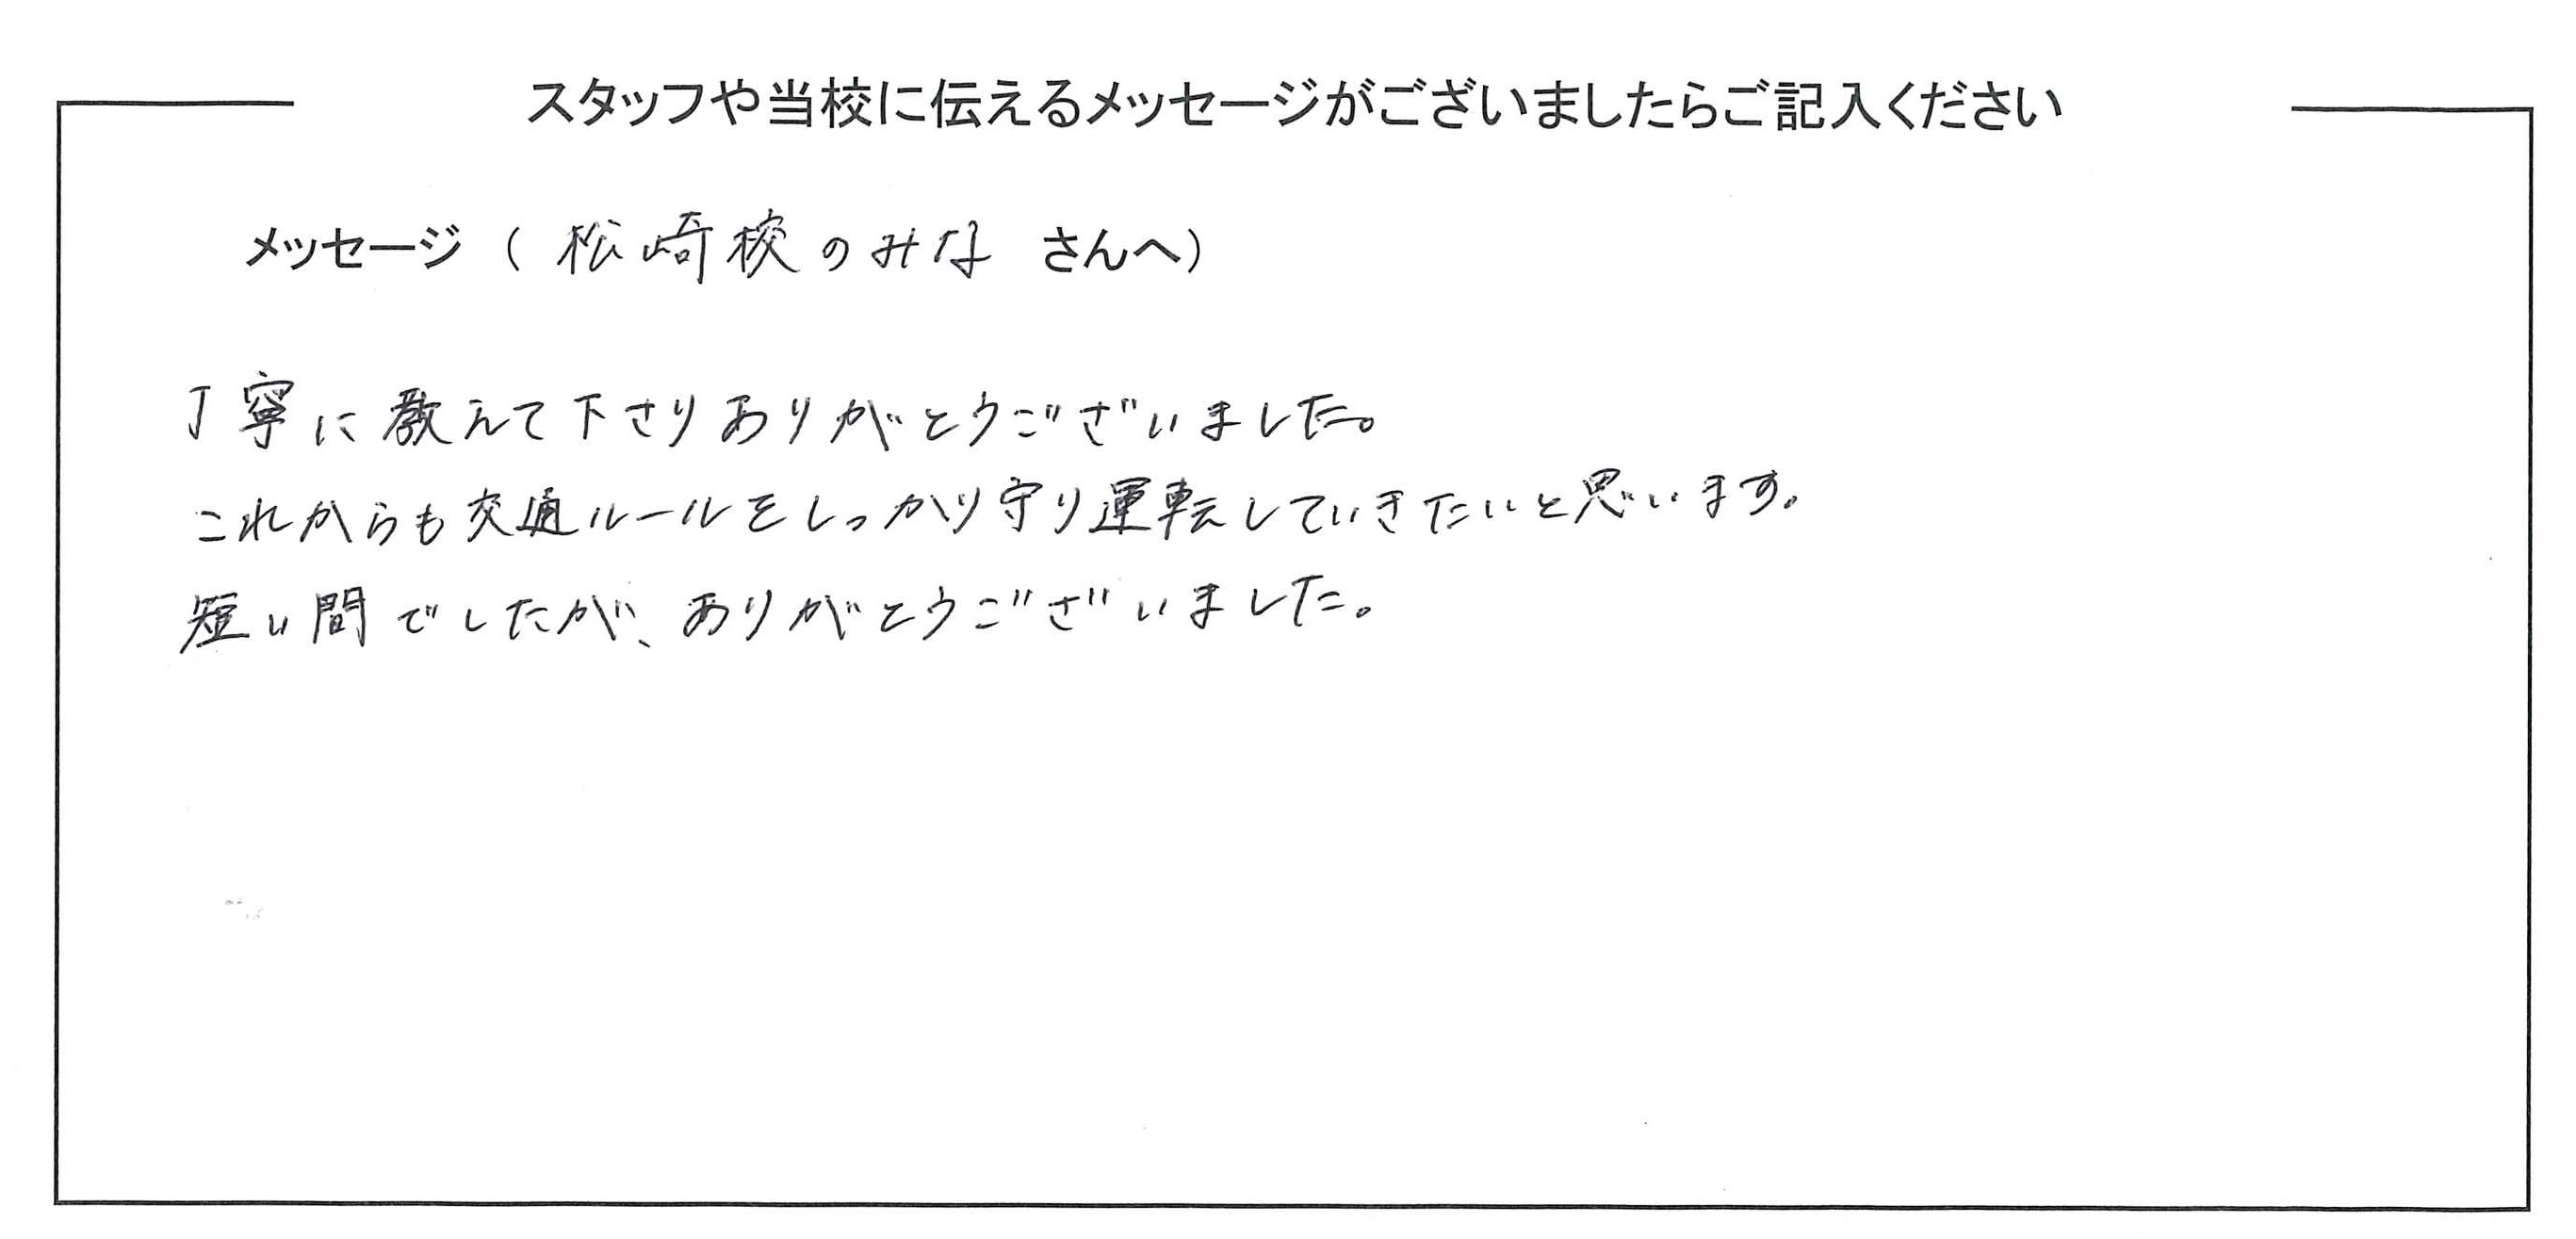 スタッフや当校に伝えるメッセージがございましたらご記入ください
メッセージ（ 松崎校のみな さんへ）
丁寧に教えて下さりありがとうございました。
これからも交通ルールをしっかり守り運転していきたいと思います。
短い間でしたが、ありがとうございました。